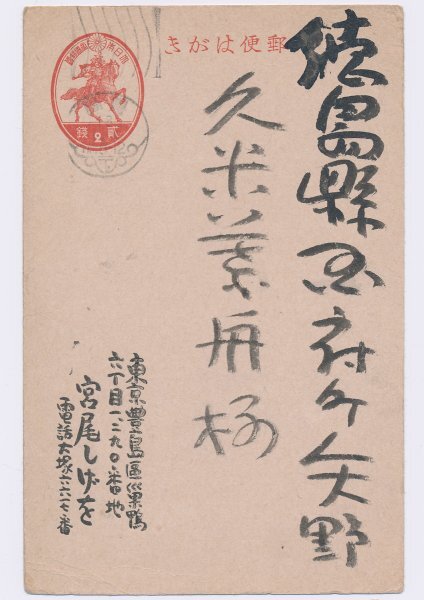 郵便はがき
大日本帝國郵便
貳
2
錢
徳島縣国府町矢野
久米益舟様
東京豊島區巣鴨
六丁目一、二九〇番地
宮尾しげを
電話大塚六六一七番